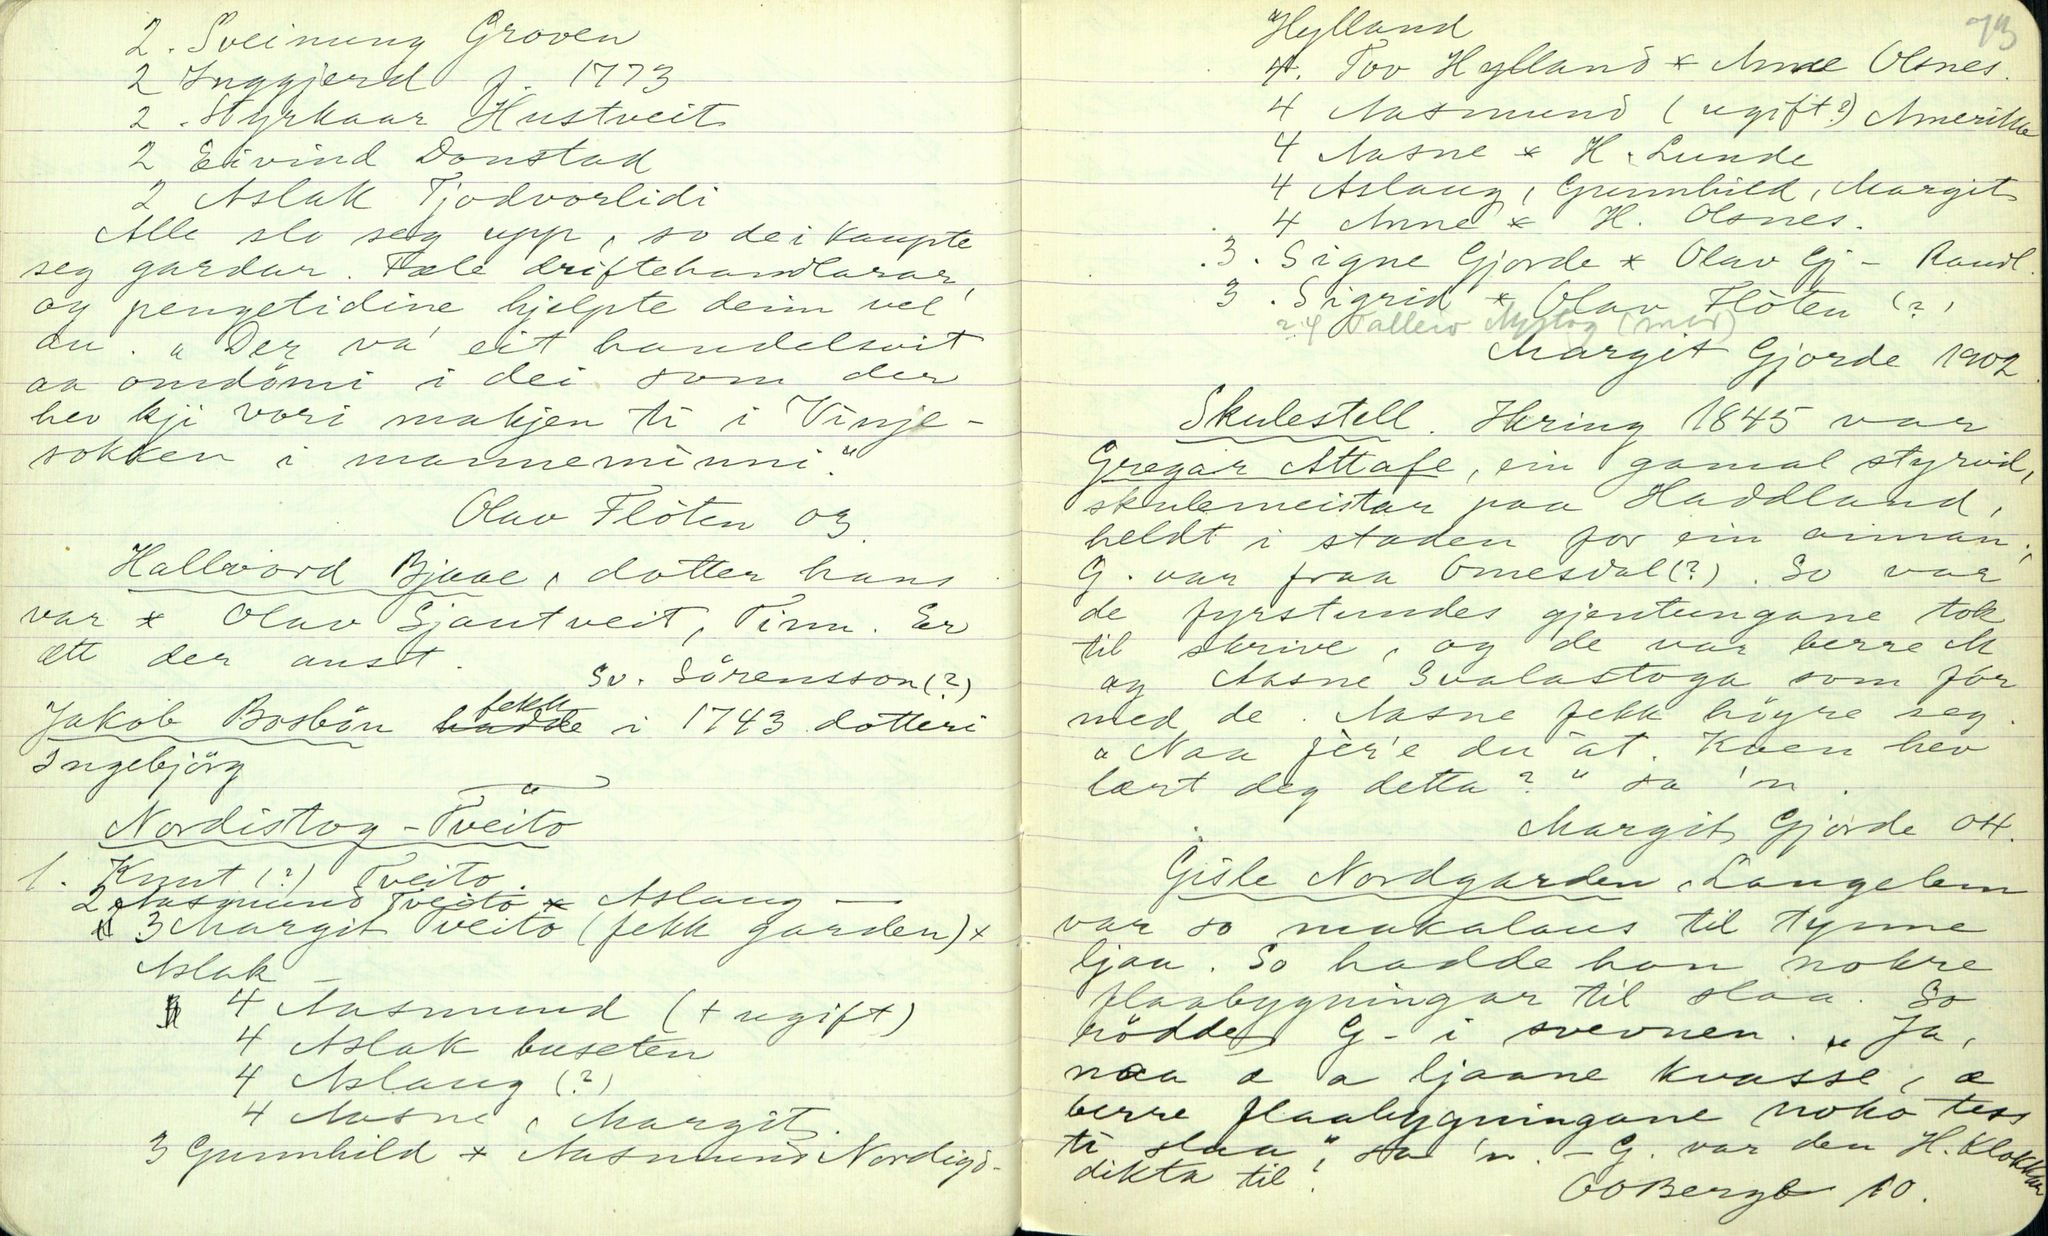 2. Sveinung Groven
2 Inggjerd f. 1773
2. Styrkaar Hustveit
2 Eivind Donstad
2 Aslak Tjodvorlidi
Alle slo seg upp, so dei kaupte
seg gardar. Fæle driftehandlarar,
og pengetidine hjelpte deim vel
au. "Der va' eit handelsvit
aa omdömi i dei som der
hev kji vori makjen ti i Vinje-
sokken i manneminni."
Olav Flöten 03.
Hallvord Bjaae, dotter hans
var * Olav Sjautveit, Tinn. Er
ætt der aust.
Sv. Sörensson (?)
Jakob Bosbön hadde fekk i 1743 dotteri
Ingebjörg
Nordistog-Tveito
1. Knut (?) Tveito.
2 Aasmund Tveito * Aslaug —
3 Margit Tveito (fekk garden) *
Aslak —
4 Aasmund (+ ugift)
4 Aslak buseten
4 Aslaug (?)
4 Aasne, Margit.
3 Gunnhild * Aasmund Nordigö-
73
Hylland
4. Tov Hylland * Anne Olsnes.
4 Aasmund (ugift?) Amerika
4 Aasne * H. Lunde
4 Aslaug, Gunnhild, Margit
4 Anne * H. Olsnes.
3. Signe Gjorde * Olav Gj- Raudl.
3. Sigrid * Olav Flöten (?)
24 Talleiv Nystog (med)
Margit Gjorde 1902.
Skulestell. Ikring 1845 var
Gregar Attafe, ein gamal styrvid,
skulemeistar paa Haddland,
heldt i staden for ein annan.
G. var fraa Omesdal (?). So var
de fyrstundes gjentungane tok
til skrive, og de var berre M
og Aasne Svalastoga som fór
med de. Aasne fekk högre seg.
"Naa fèr'e du àt. Kven hev
lært deg detta?" sa 'n.
Margit Gjorde 04.
Gisle Nordgarden, Laugeleim
var so makalaus til tynne
ljaa. So hadde han nokre
flaabygningar til slaa. So
rödde G- i svevnen. "Ja,
naa æ a ljaane kvasse, æ
berre flaabygningane noko tess
ti slaa", sa 'n. - G. var den H. Klokkar
dikta til.
OO Berge 10.